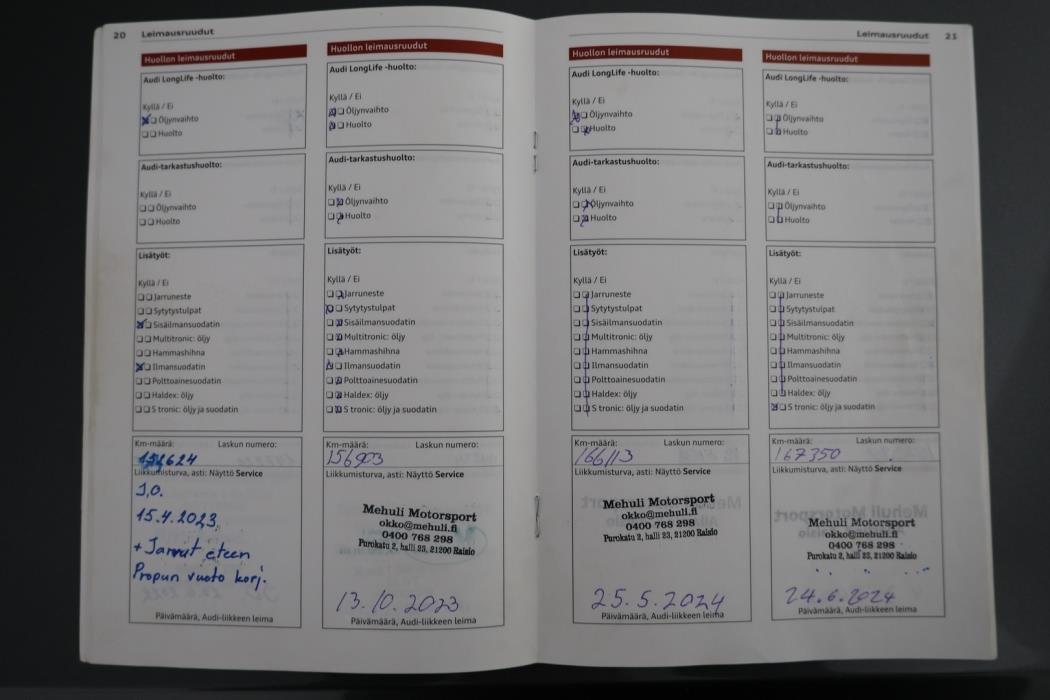 20 Leimausruudut
Huollon leimausruudut
Audi LongLife -huolto:
Kyllä / Ei
Öljynvaihto
Huolto
Audi-tarkastushuolto:
Kyllä / Ei
Öljynvaihto
Huolto
Lisätyöt:
Kyllä / Ei
Jarruneste
Sytytystulpat
Sisäilmansuodatin
Multitronic: öljy
Hammashihna
Ilmansuodatin
Polttoainesuodatin
Haldex: öljy
S tronic: öljy ja suodatin
Km-määrä: Laskun numero:
Liikkumisturva, asti: Näyttö Service
J.O.
15.4.2023
+ Jarrut eteen
Propun vuoto korj.
Päivämäärä, Audi-liikkeen leima
Huollon leimausruudut
Audi LongLife -huolto:
Kyllä / Ei
Öljynvaihto
Huolto
Audi-tarkastushuolto:
Kyllä / Ei
Öljynvaihto
Huolto
Lisätyöt:
Kyllä / Ei
Jarruneste
Sytytystulpat
Sisäilmansuodatin
Multitronic: öljy
Hammashihna
Ilmansuodatin
Polttoainesuodatin
Haldex: öljy
S tronic: öljy ja suodatin
Km-määrä: Laskun numero:
156903
Liikkumisturva, asti: Näyttö Service
Mehuli Motorsport
okko@mehuli.fi
0400 768 298
Purokatu 2, halli 23, 21200 Raisio
13.10.2023
Päivämäärä, Audi-liikkeen leima
Leimausruudut 21
Huollon leimausruudut
Audi LongLife -huolto:
Kyllä / Ei
Öljynvaihto
Huolto
Audi-tarkastushuolto:
Kyllä / Ei
Öljynvaihto
Huolto
Lisätyöt:
Kyllä / Ei
Jarruneste
Sytytystulpat
Sisäilmansuodatin
Multitronic: öljy
Hammashihna
Ilmansuodatin
Polttoainesuodatin
Haldex: öljy
S tronic: öljy ja suodatin
Km-määrä: Laskun numero:
166113
Liikkumisturva, asti: Näyttö Service
Mehuli Motorsport
okko@mehuli.fi
0400 768 298
Purokatu 2, halli 23, 21200 Raisio
25.5.2024
Päivämäärä, Audi-liikkeen leima
Huollon leimausruudut
Audi LongLife -huolto:
Kyllä / Ei
Öljynvaihto
Huolto
Audi-tarkastushuolto:
Kyllä / Ei
Öljynvaihto
Huolto
Lisätyöt:
Kyllä / Ei
Jarruneste
Sytytystulpat
Sisäilmansuodatin
Multitronic: öljy
Hammashihna
Ilmansuodatin
Polttoainesuodatin
Haldex: öljy
S tronic: öljy ja suodatin
Km-määrä: Laskun numero:
167350
Liikkumisturva, asti: Näyttö Service
Mehuli Motorsport
okko@mehuli.fi
0400 768 298
Purokatu 2, halli 23, 21200 Raisio
24.6.2024
Päivämäärä, Audi-liikkeen leima